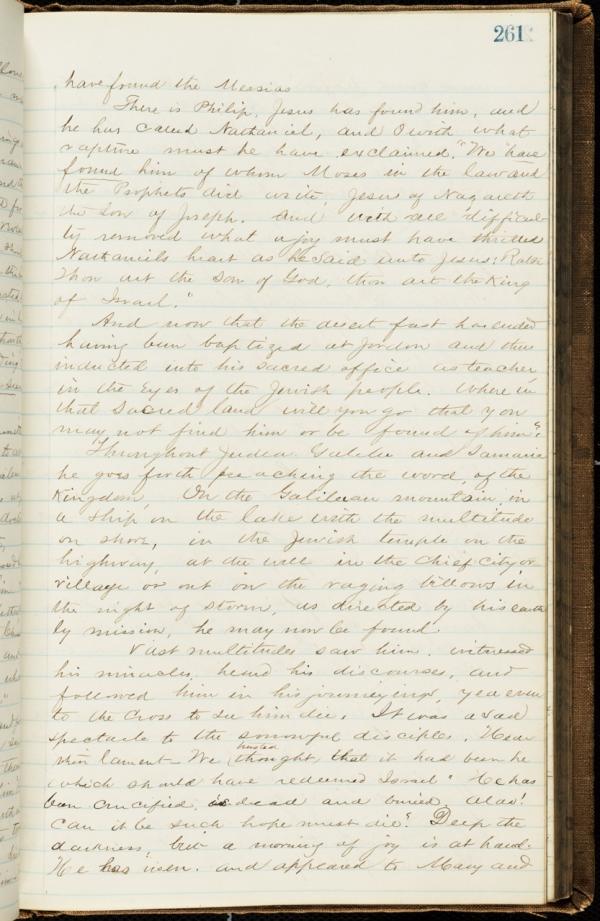 261
have found the Messias
There is Philip, Jesus has found him, and
he has called Nathaniel, and O with what
rapture must he have exclaimed, "We have
found him of whom Moses in the law and
the Prophets did write, Jesus of Nazareth
the son of Joseph. And with all difficul
ty removed what a joy must have thrilled
Nathaniels heart as he said unto Jesus; Rabbi
Thou art the son of God, thou art the King
of Israel."
And now that the desert fast has ended
having been baptized at Jordon and thus
inducted into his sacred office as teacher
in the Eyes of the Jewish people. Where in
that sacred land will you go that you
may not find him or be found of him?
Throughout Judea Galilee and Samaria
he goes forth preaching the word of the
Kingdom, On the Galilean mountain, in
a ship on the lake with the multitude
on shore, in the Jewish temple on the
highway, at the well in the chief city or
village or out on the raging billows in
the night of storm, as directed by his earth
ly mission, he may now be found.
Vast multitudes saw him, witnessed
his miracles, heard his discourses, and
followed him in his journeyings, yea even
to the Cross to see him die. It was a sad
spectacle to the sorrowful disciples. Hear
their lament - We trusted thought, that it had been he
which should have redeemed Israel" He has
been crucified, is dead and buried, alas!
Can it be such hope must die? Deep the
darkness, but a morning of joy is at hand.
He has risen, and appeared to Mary and